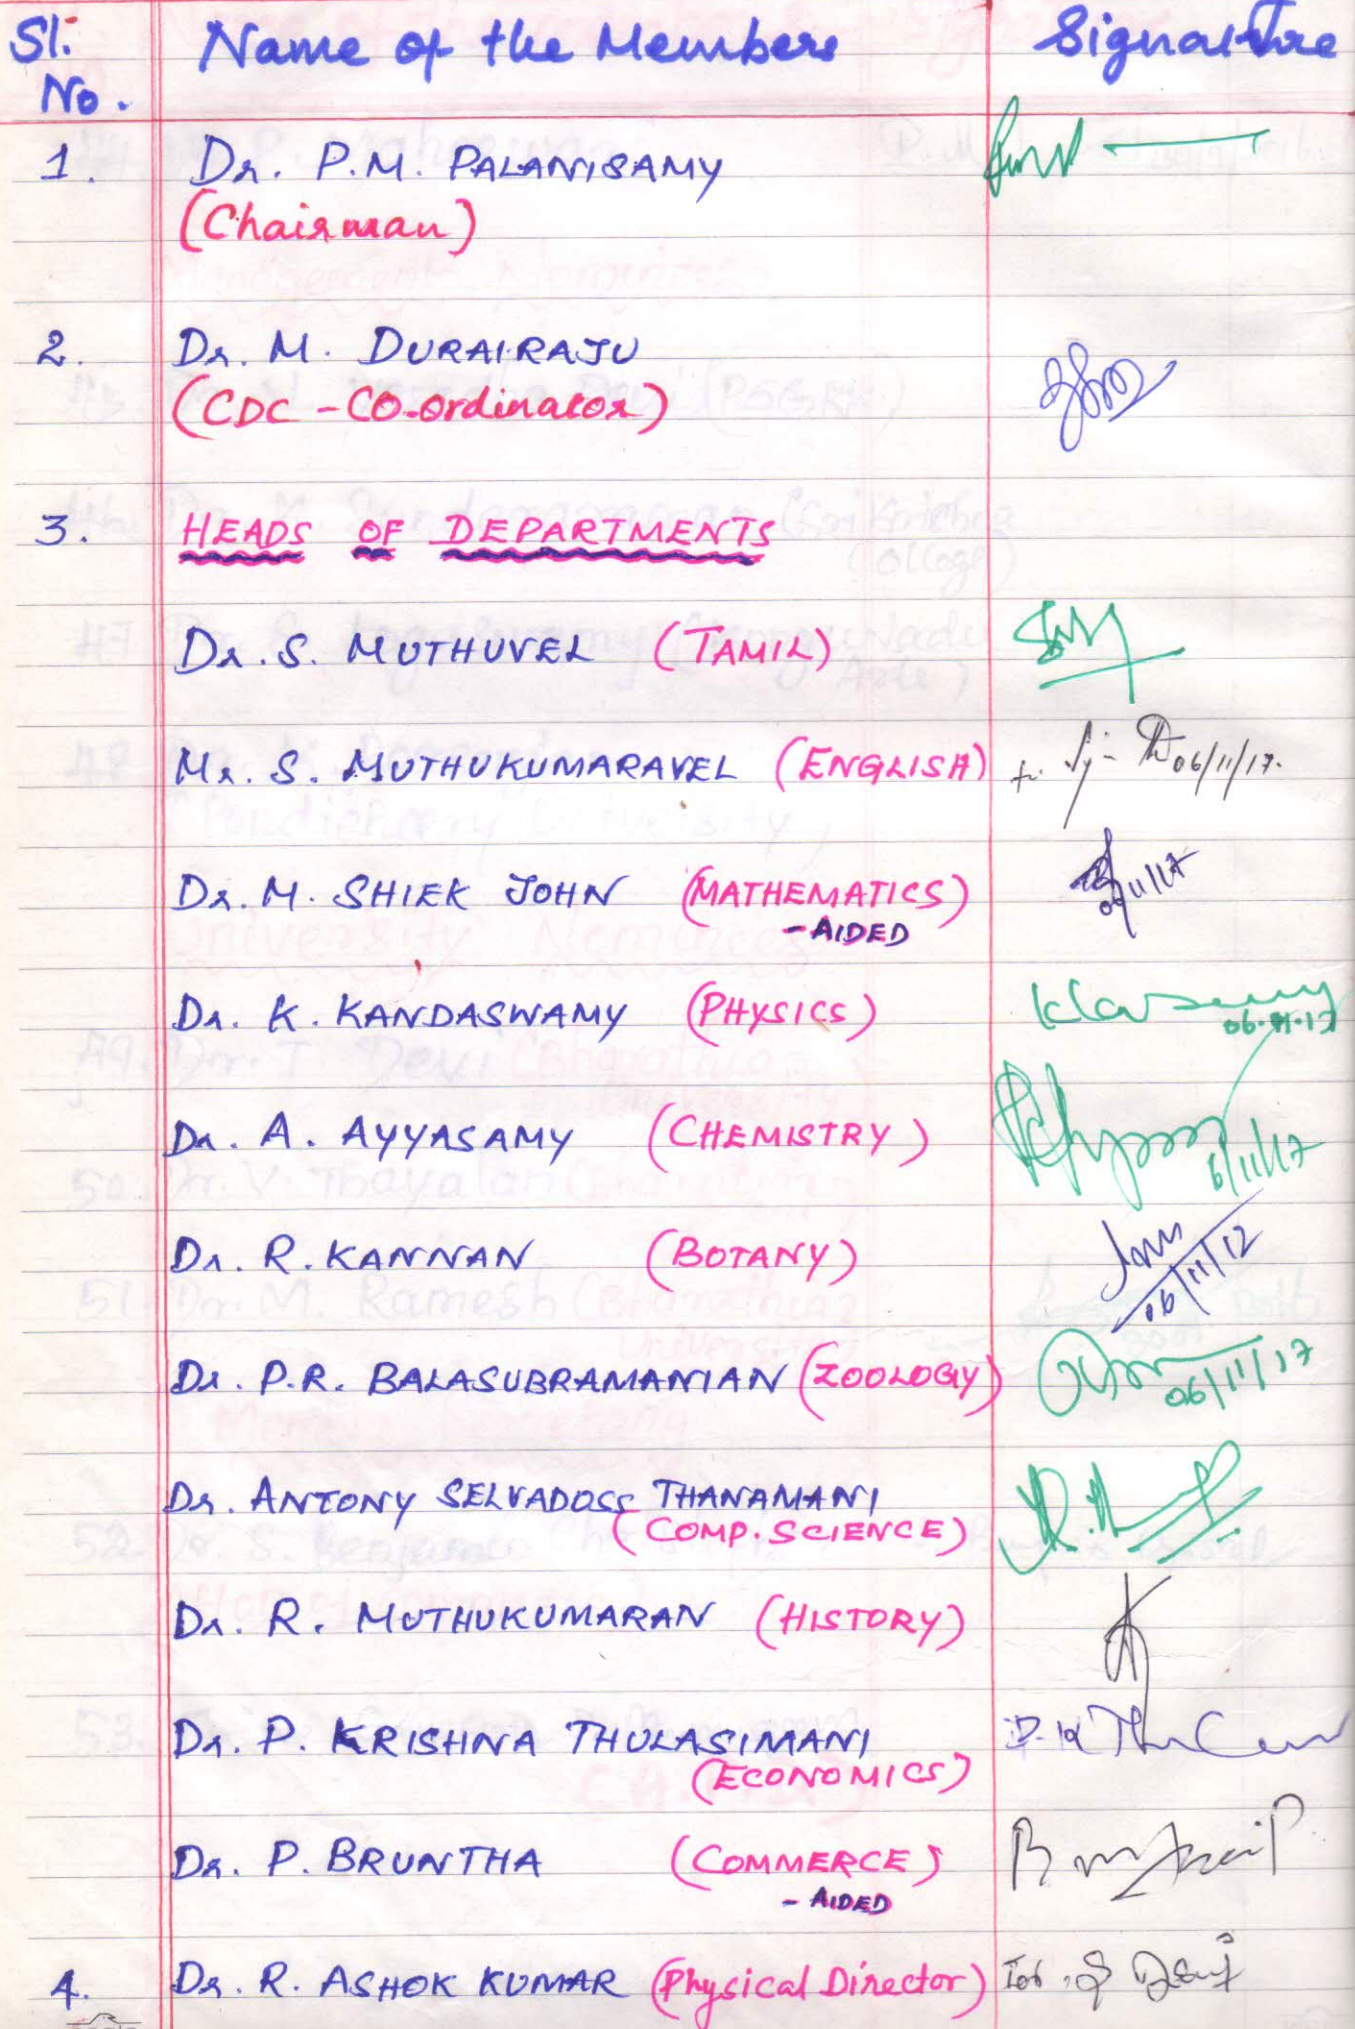 Sl. Name of the Members Signature
No.
1. Dr. P.M. PALANISAMY
(Chairman)
2. Dr. M. DURAIRAJU
(CDC - CO-ordinator)
3. HEADS OF DEPARTMENTS
Dr. S. MUTHUVEL (TAMIL)
Mr. S. MUTHUKUMARAVEL (ENGLISH) 06/11/17.
Dr. M. SHIEK JOHN (MATHEMATICS) 06/11/17
- AIDED
Dr. K. KANDASWAMY (PHYSICS)
06.11.17
Dr. A. AYYASAMY (CHEMISTRY) 6/11/17
Dr. R. KANNAN (BOTANY) 06/11/17
Dr. P.R. BALASUBRAMANIAN (ZOOLOGY) 06/11/17
Dr. ANTONY SELVADOSS THANAMANI
(COMP. SCIENCE)
Dr. R. MUTHUKUMARAN (HISTORY)
Dr. P. KRISHNA THULASIMANI
(ECONOMICS)
Dr. P. BRUNTHA (COMMERCE)
- AIDED
4. Dr. R. ASHOK KUMAR (Physical Director)